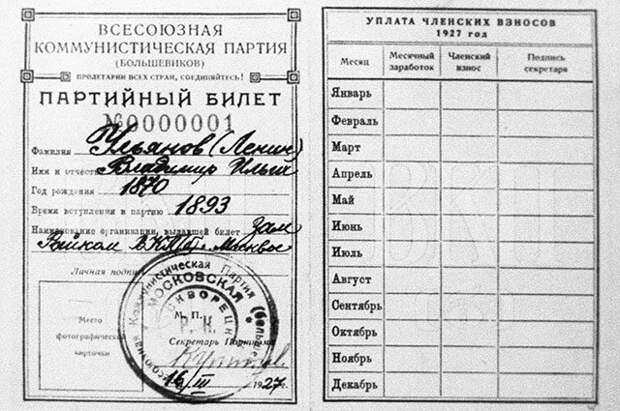 ВСЕСОЮЗНАЯ
КОММУНИСТИЧЕСКАЯ ПАРТИЯ
(БОЛЬШЕВИКОВ)
ПРОЛЕТАРИИ ВСЕХ СТРАН, СОЕДИНЯЙТЕСЬ!
ПАРТИЙНЫЙ БИЛЕТ
№0000001
Фамилия Ульянов (Ленин)
Имя и отчество Владимир Ильич
Год рождения 1870
Время вступления в партию 1893
Наименование организации, выдавшей билет Зам
Райком ВКП(б) г. Москвы
Личная подпись
Место
фотографической
карточки
Коммунистическая Партия
МОСКОВСКАЯ
М. П.
Р. К.
Секретарь
16/III 1927 г.
УПЛАТА ЧЛЕНСКИХ ВЗНОСОВ
1927 год
Месяц
Месячный
заработок
Членский
взнос
Подпись
секретаря
Январь
Февраль
Март
Апрель
Май
Июнь
Июль
Август
Сентябрь
Октябрь
Ноябрь
Декабрь